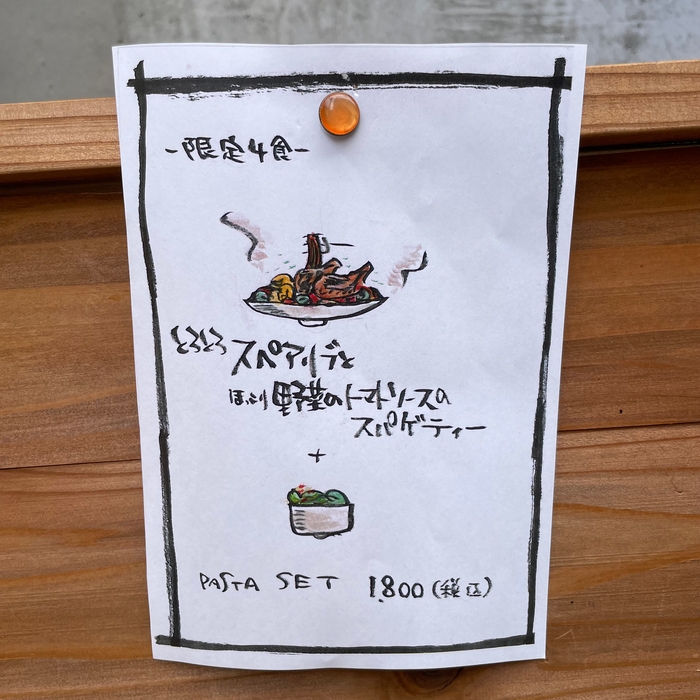 -限定4食-
とろとろ スペアリブと
ほっこり野菜のトマトソースの
スパゲティー
+
PASTA SET 1.800(税込)